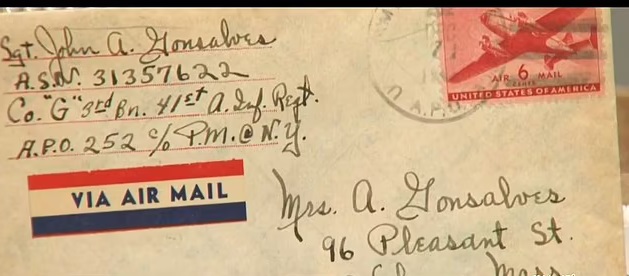 Sgt. John A. Gonsalves
A.S.N. 31357622
Co. "G" 3rd Bn. 41st A. Inf. Regt.
A.P.O. 252 c/o P.M. @ N.Y.
VIA AIR MAIL
A.P.O.
AIR 6 MAIL
CENTS
UNITED STATES OF AMERICA
Mrs. A. Gonsalves
96 Pleasant St.
Mass.